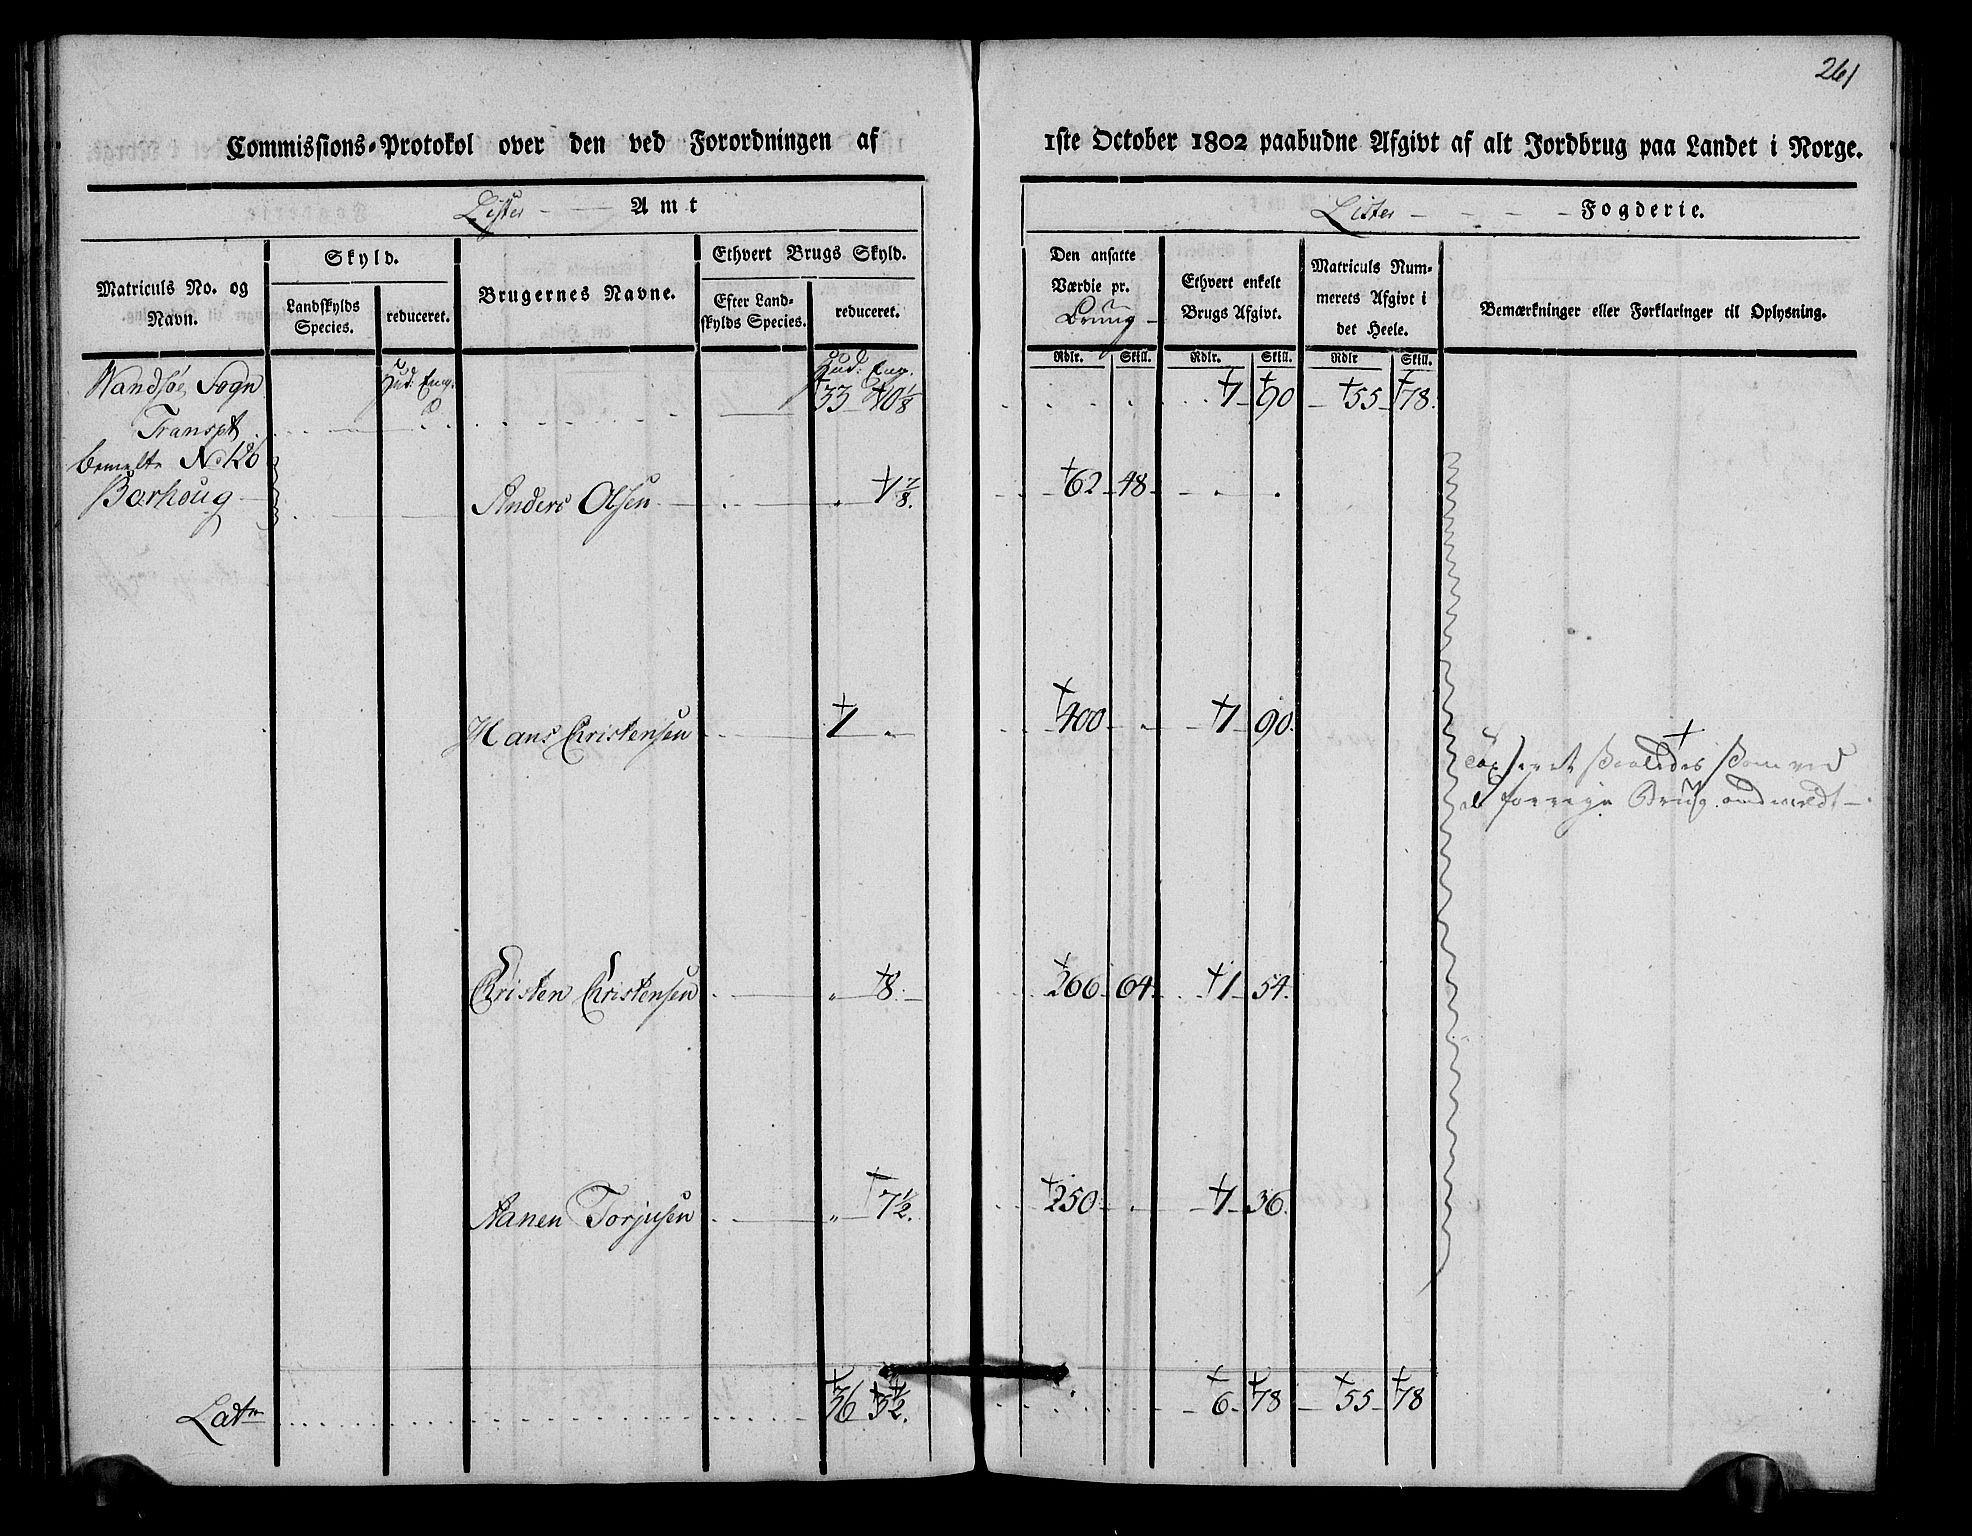 261
Commissions-Protokol over den ved Forordningen af 1ste October 1802 paabudne Afgivt af alt Jordbrug paa Landet i Norge.
Lister Amt
Lister Fogderie.
Matriculs No. og Navn.
Skyld.
Landskylds Species.
reduceret.
Brugernes Navne.
Ethvert Brugs Skyld.
Efter Landskylds Species.
reduceret.
Den ansatte Værdie pr. Brug
Ethvert enkelt Brugs Afgivt.
Matriculs Nummerets Afgivt i det Heele.
Bemærkninger eller Forklaringer til Oplysning.
Rdlr. Skill. Rdlr. Skill. Rdlr Skill.
Hud: Eng: Hud: Eng.
Wandsøe Sogn
Transpt 33 10 1/8 1 90 55 78.
bemelte No 126
Barhoug Anders Olsen 1 7/8. 62 48
Hans Christensen 1 „ 400 1 90.
Taxseret saaledes som ved
forrige Brug anmeldt
Christen Christensen „ 8. 266 64. 1 54.
Aanen Torjusen „ 7 1/2. 250 1 36.
Latr 36 5 1/2. 6 78 55 78